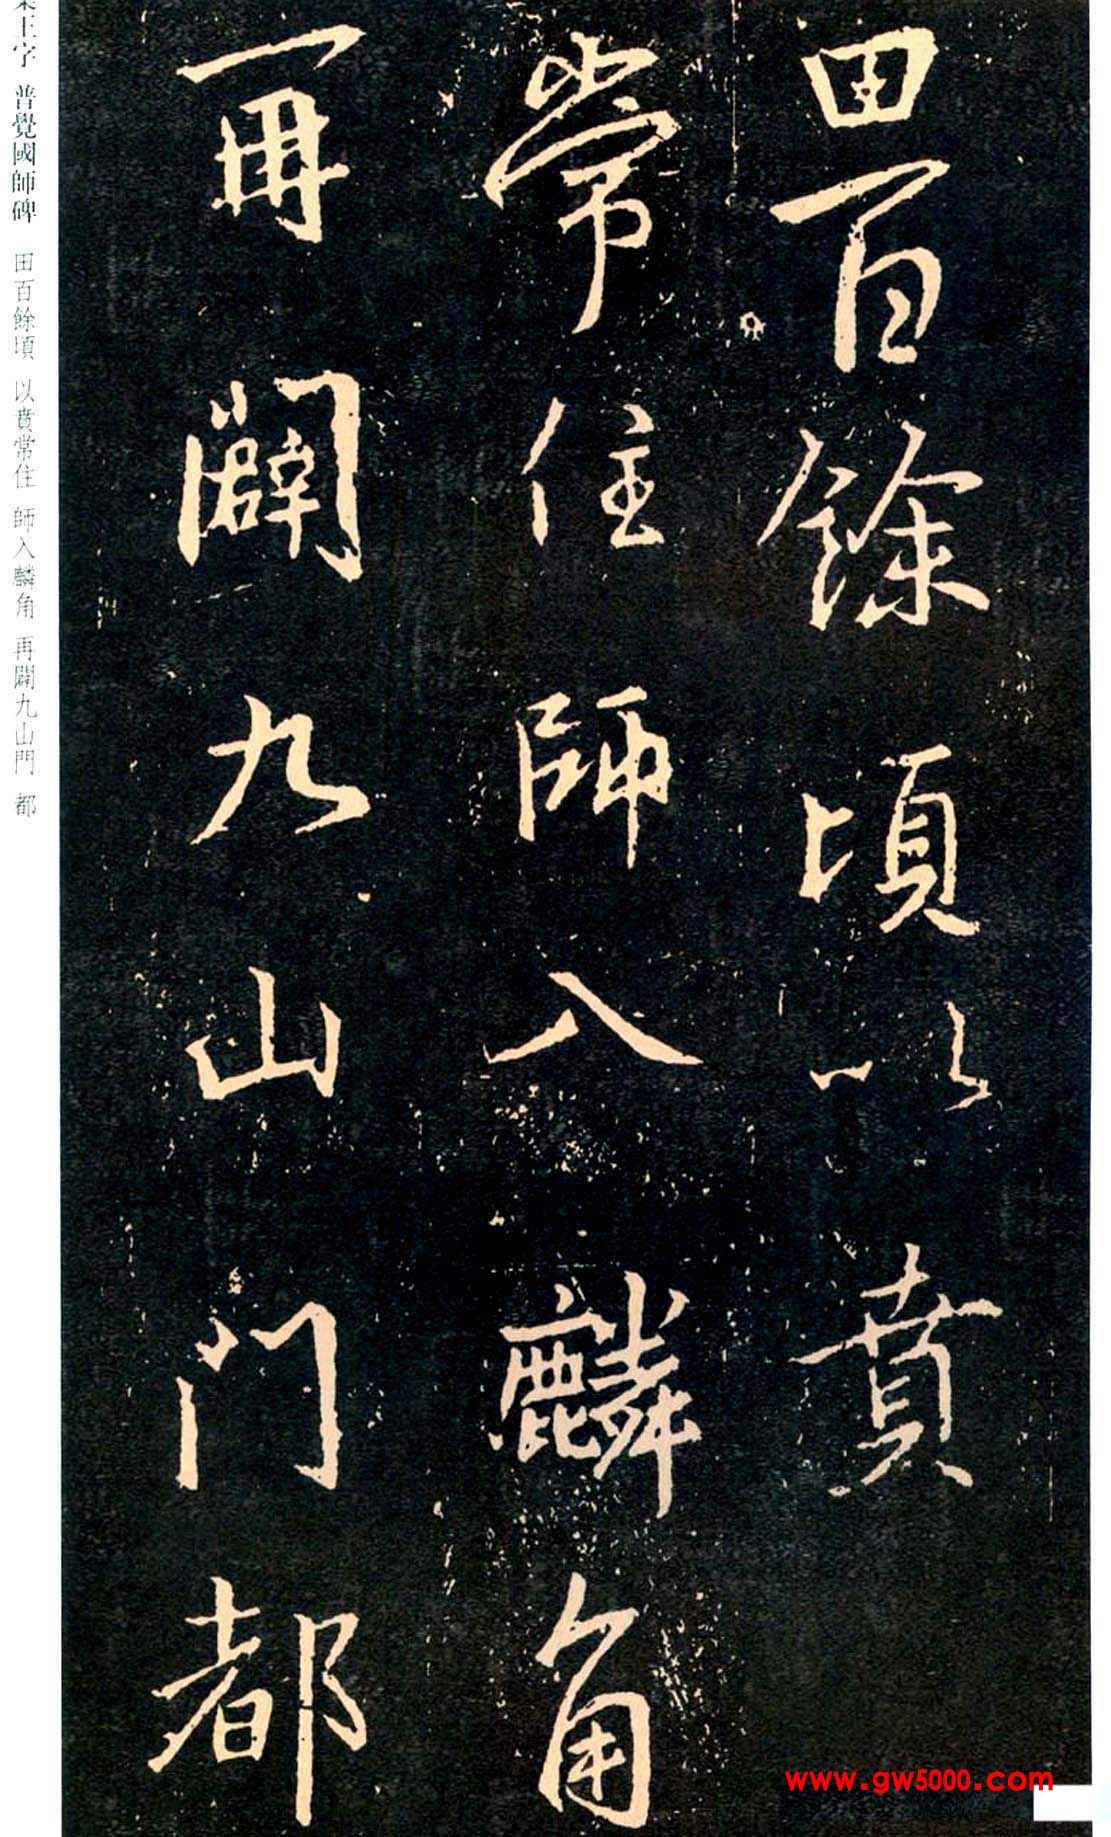 田百餘頃以賁
常住師入麟角
再闢九山門都
王字 普覺國師碑 田百餘頃 以賁常住 師入麟角 再闢九山門 都
www.gw5000.com